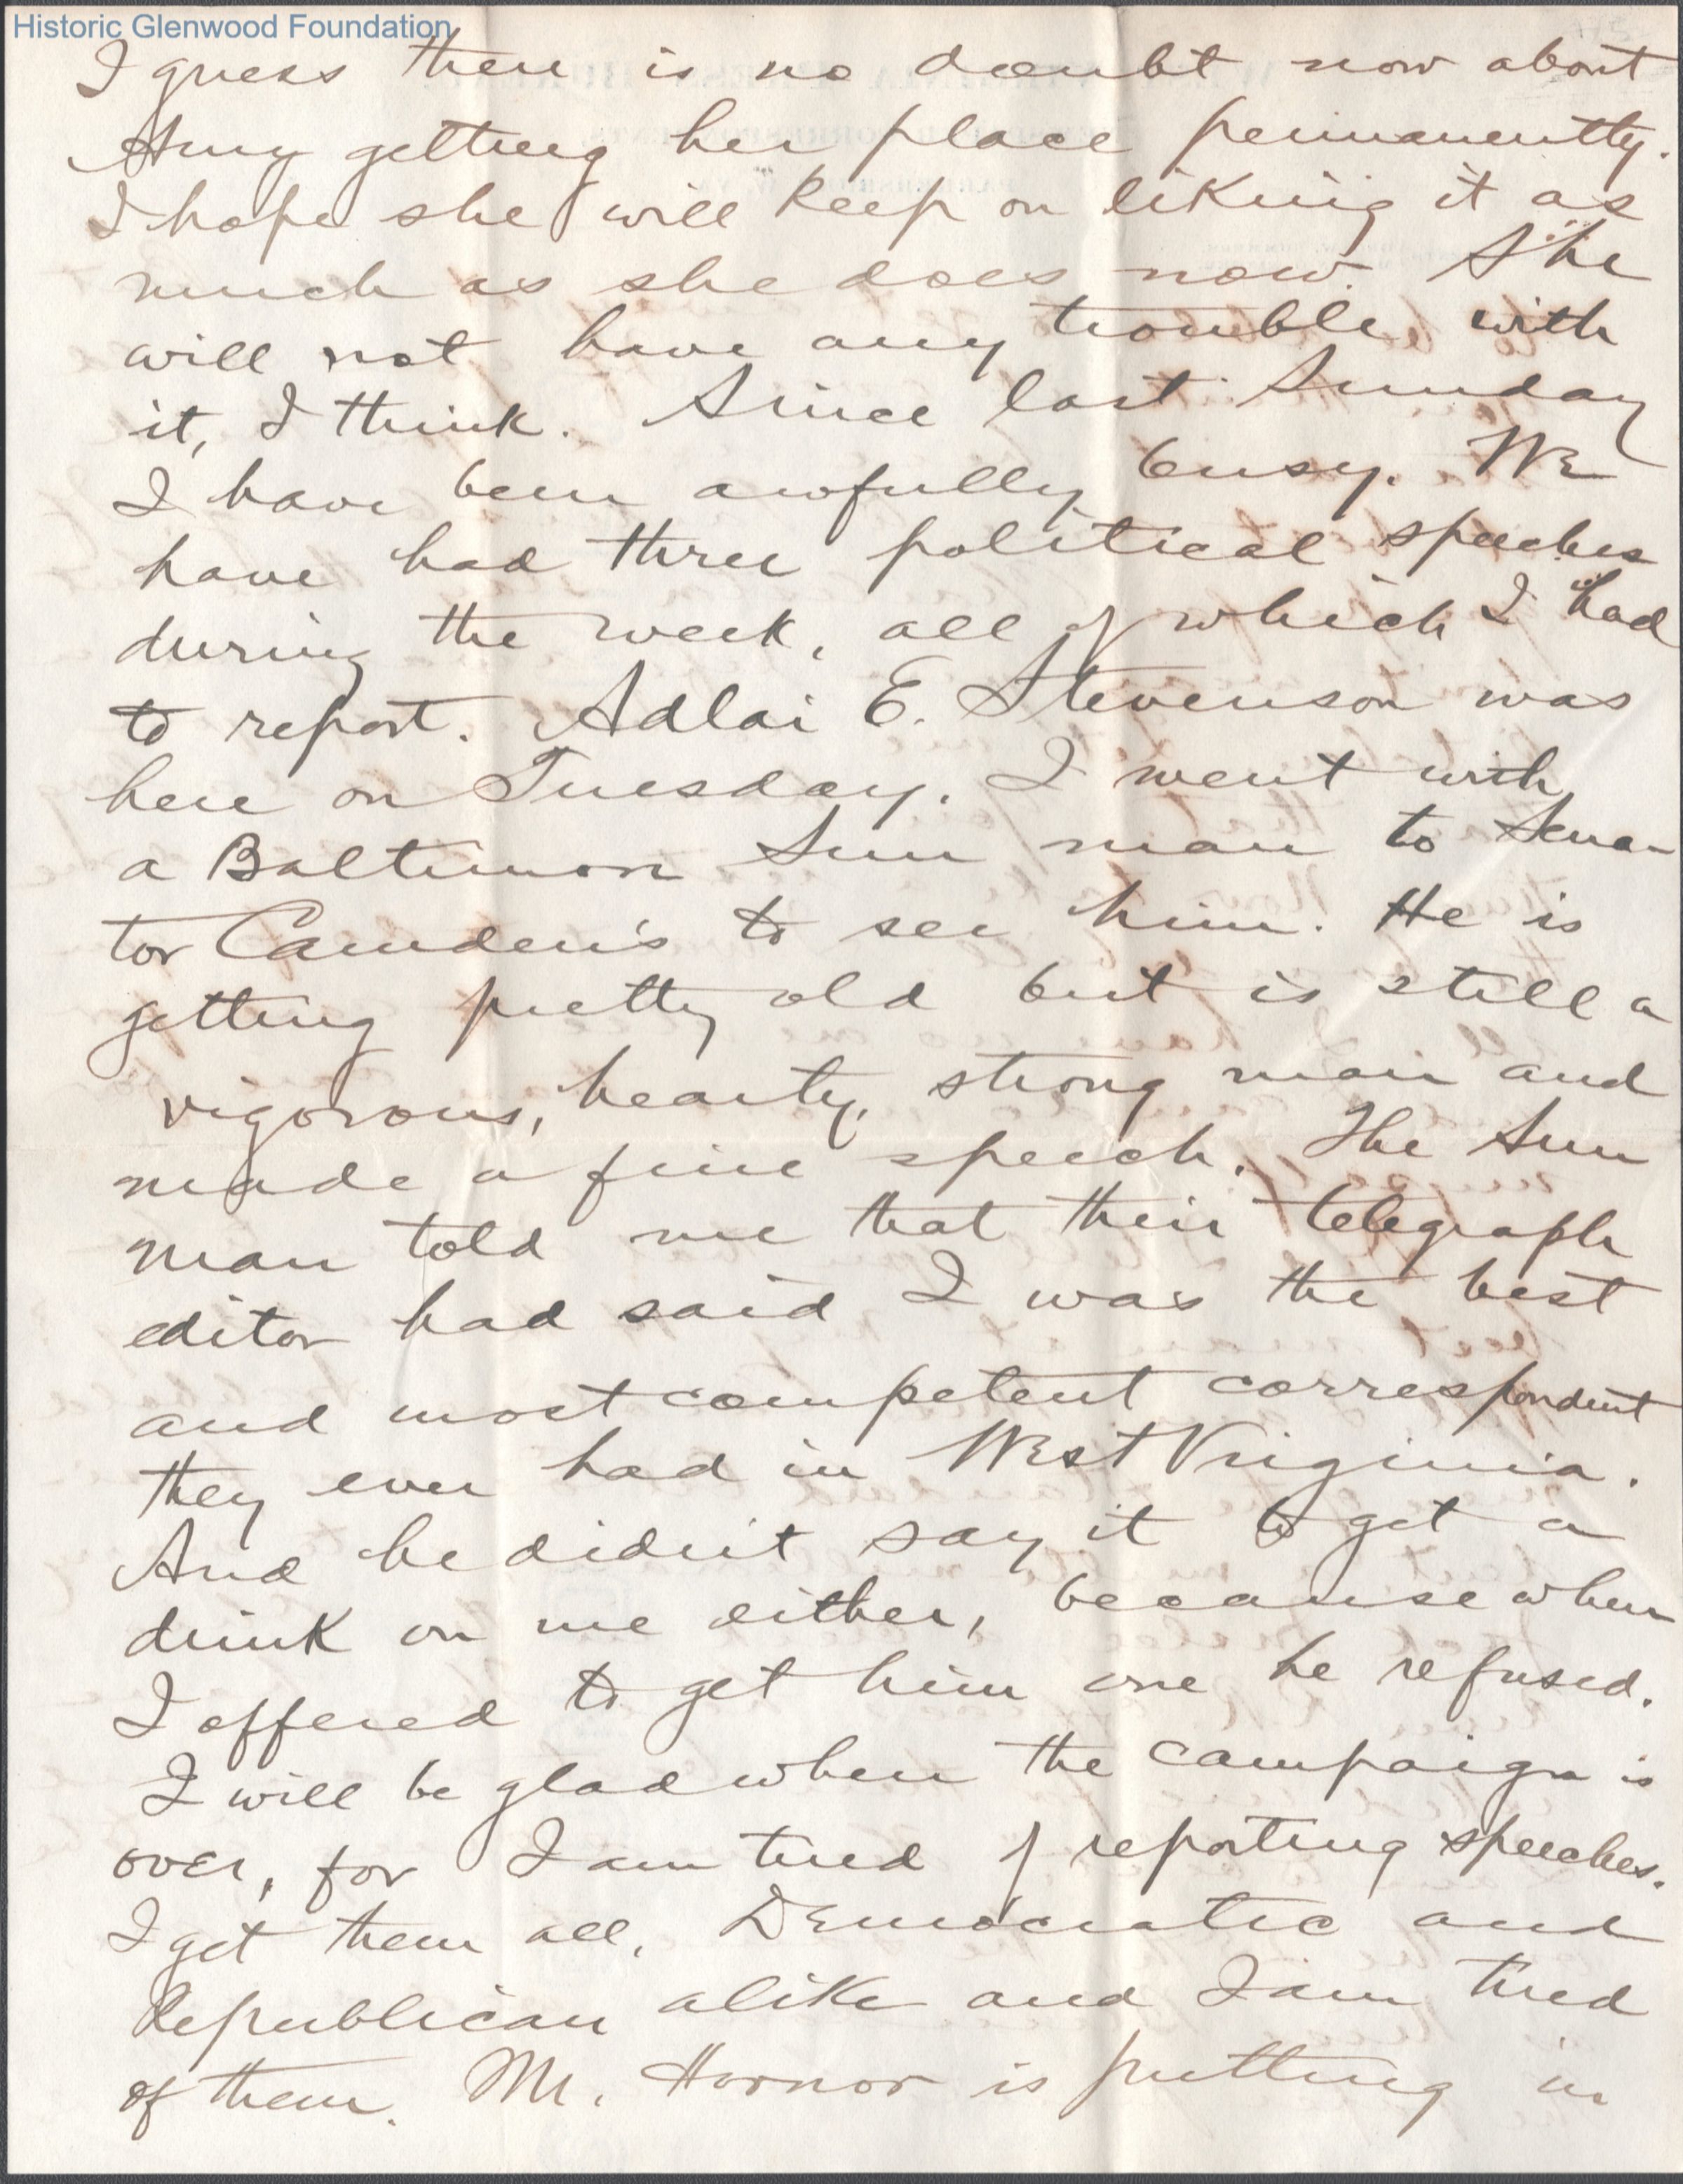 Historic Glenwood Foundation
I guess there is no doubt now about
Amy getting her place permanently.
I hope she will keep on liking it as
much as she does now. She
will not have any trouble with
it, I think. Since last Sunday
I have been awfully busy. We
have had three political speeches
during the week, all of which I had
to report. Adlai E. Stevenson was
here on Tuesday. I went with
a Baltimore Sun man to Sena-
tor Camden's to see him. He is
getting pretty old but is still a
vigorous, hearty, strong man and
made a fine speech. The Sun
man told me that their telegraph
editor had said I was the best
and most competent correspondent
they ever had in West Virginia.
And he didn't say it to get a
drink on me either, because when
I offered to get him one he refused.
I will be glad when the campaign is
over, for I am tired of reporting speeches.
I get them all, Democratic and
Republican alike and I am tired
of them. Mr. Hornor is putting in